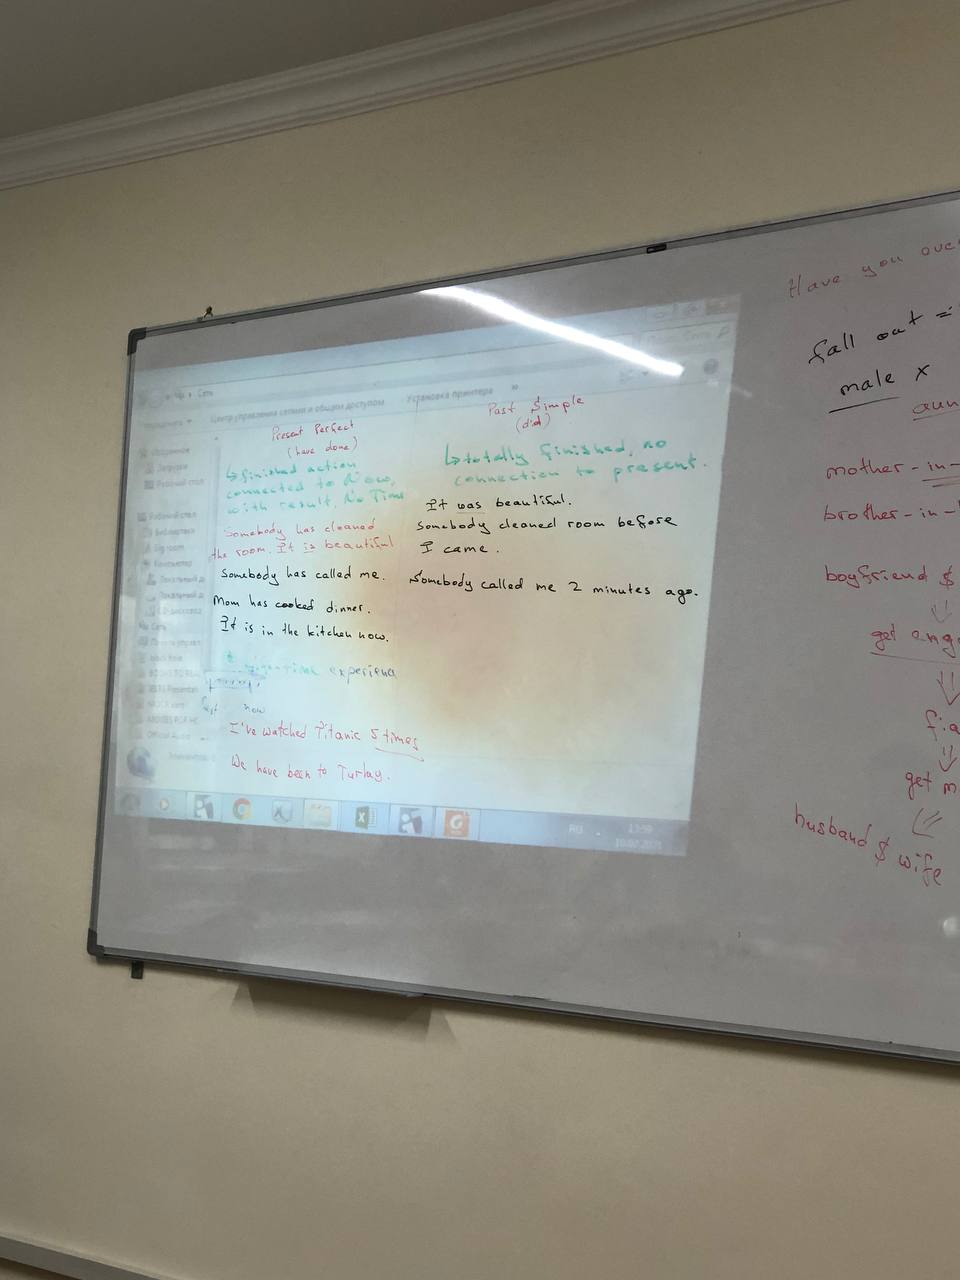 Сеть
Центр управления сетями и общим доступом
Установка принтера
Present Perfect
(have done)
↳ finished action
connected to Now,
with result. No Time
Somebody has cleaned
the room. It is beautiful
Somebody has called me.
Mom has cooked dinner.
It is in the kitchen now.
experienc
now
I've watched Titanic 5 times
We have been to Turkey.
Past Simple
(did)
↳ totally finished, no
connection to present.
It was beautiful.
Somebody cleaned room before
I came.
Somebody called me 2 minutes ago.
Избранное
Загрузки
Рабочий стол
Рабочий стол
Библиотеки
Big room
Компьютер
Сеть
Official Audio
RU
13:59
Have you ove
fall out =
male x
aun
mother-in-
brother-in-
boyfriend &
get eng
fia
get m
husband & wife